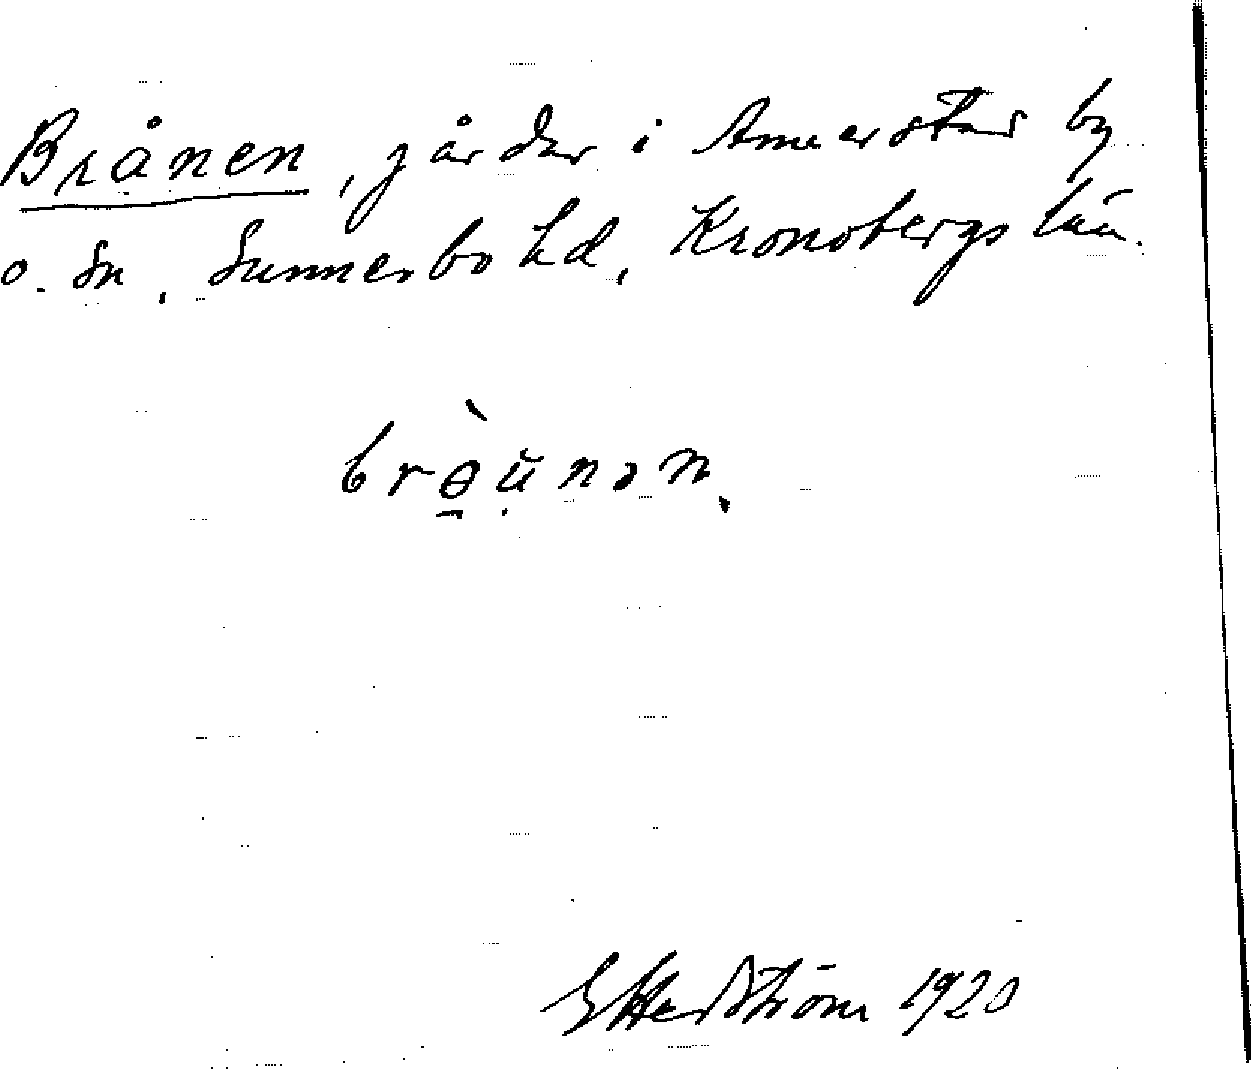 Brånen, gårdar i Annerstad by
o. sn, Sunnerbo hd, Kronobergs län.
brө̀ŭnən.
G Hedström 1920